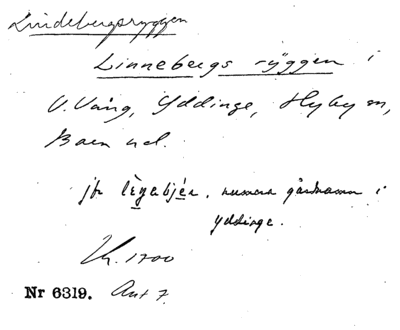 Lindebergsryggen
Linnebergs ryggen i
V. Vång, Yddinge, Hyby sn,
Bara hd.
jfr numera gårdnamn i
Yddinge.
Nr 6319. Ant 7.